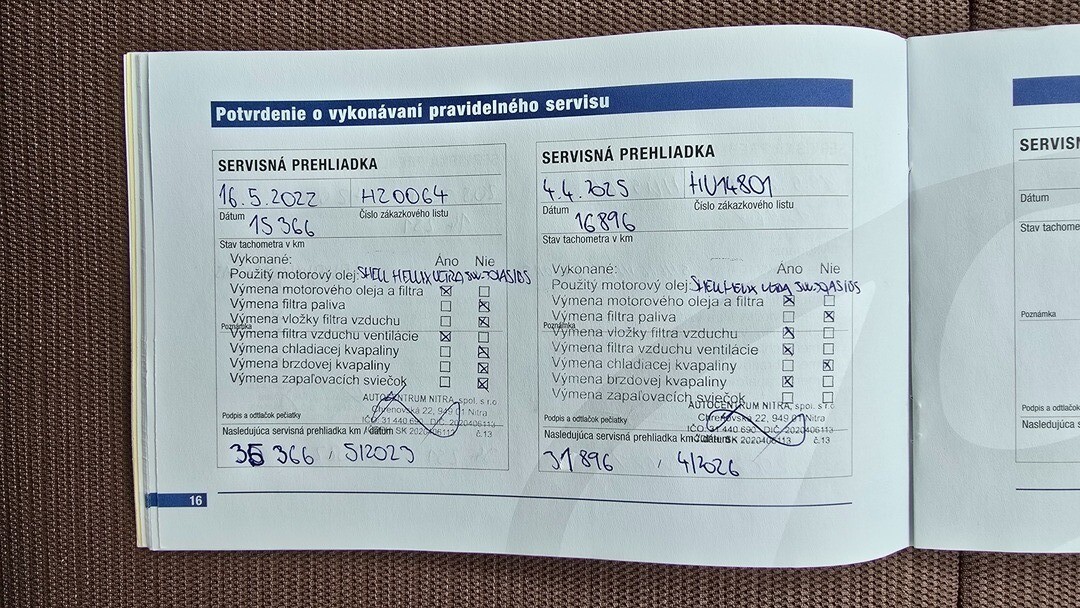 Potvrdenie o vykonávaní pravidelného servisu
SERVISNÁ PREHLIADKA
16.5.2022 HZ0064
Dátum Číslo zákazkového listu
15 366
Stav tachometra v km
Vykonané: Áno Nie
Použitý motorový olej: SHELL HELLIX
Výmena motorového oleja a filtra
Výmena filtra paliva
Výmena vložky filtra vzduchu
Poznámka
Výmena filtra vzduchu ventilácie
Výmena chladiacej kvapaliny
Výmena brzdovej kvapaliny
Výmena zapaľovacích sviečok
AUTOCENTRUM NITRA, spol. s r.o.
Chrenovská 22, 949 01 Nitra
Podpis a odtlačok pečiatky
IČO: 31 440 690 DIČ: 2020406113
Nasledujúca servisná prehliadka km / dátum SK 2020406113 č.13
35 366 , 5/2023
SERVISNÁ PREHLIADKA
4.4.2025 HU14801
Dátum Číslo zákazkového listu
16896
Stav tachometra v km
Vykonané: Áno Nie
Použitý motorový olej: SHELL HELIX
Výmena motorového oleja a filtra
Výmena filtra paliva
Poznámka
Výmena vložky filtra vzduchu
Výmena filtra vzduchu ventilácie
Výmena chladiacej kvapaliny
Výmena brzdovej kvapaliny
Výmena zapaľovacích sviečok
AUTOCENTRUM NITRA, spol. s r.o.
Chrenovská 22, 949 01 Nitra
Podpis a odtlačok pečiatky
IČO: 31 440 690 DIČ: 2020406113
Nasledujúca servisná prehliadka km / dátum SK 2020406113 č.13
31 896 , 4/2026
16
Dátum
Poznámka